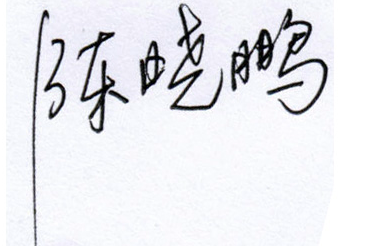 陈晓鹏